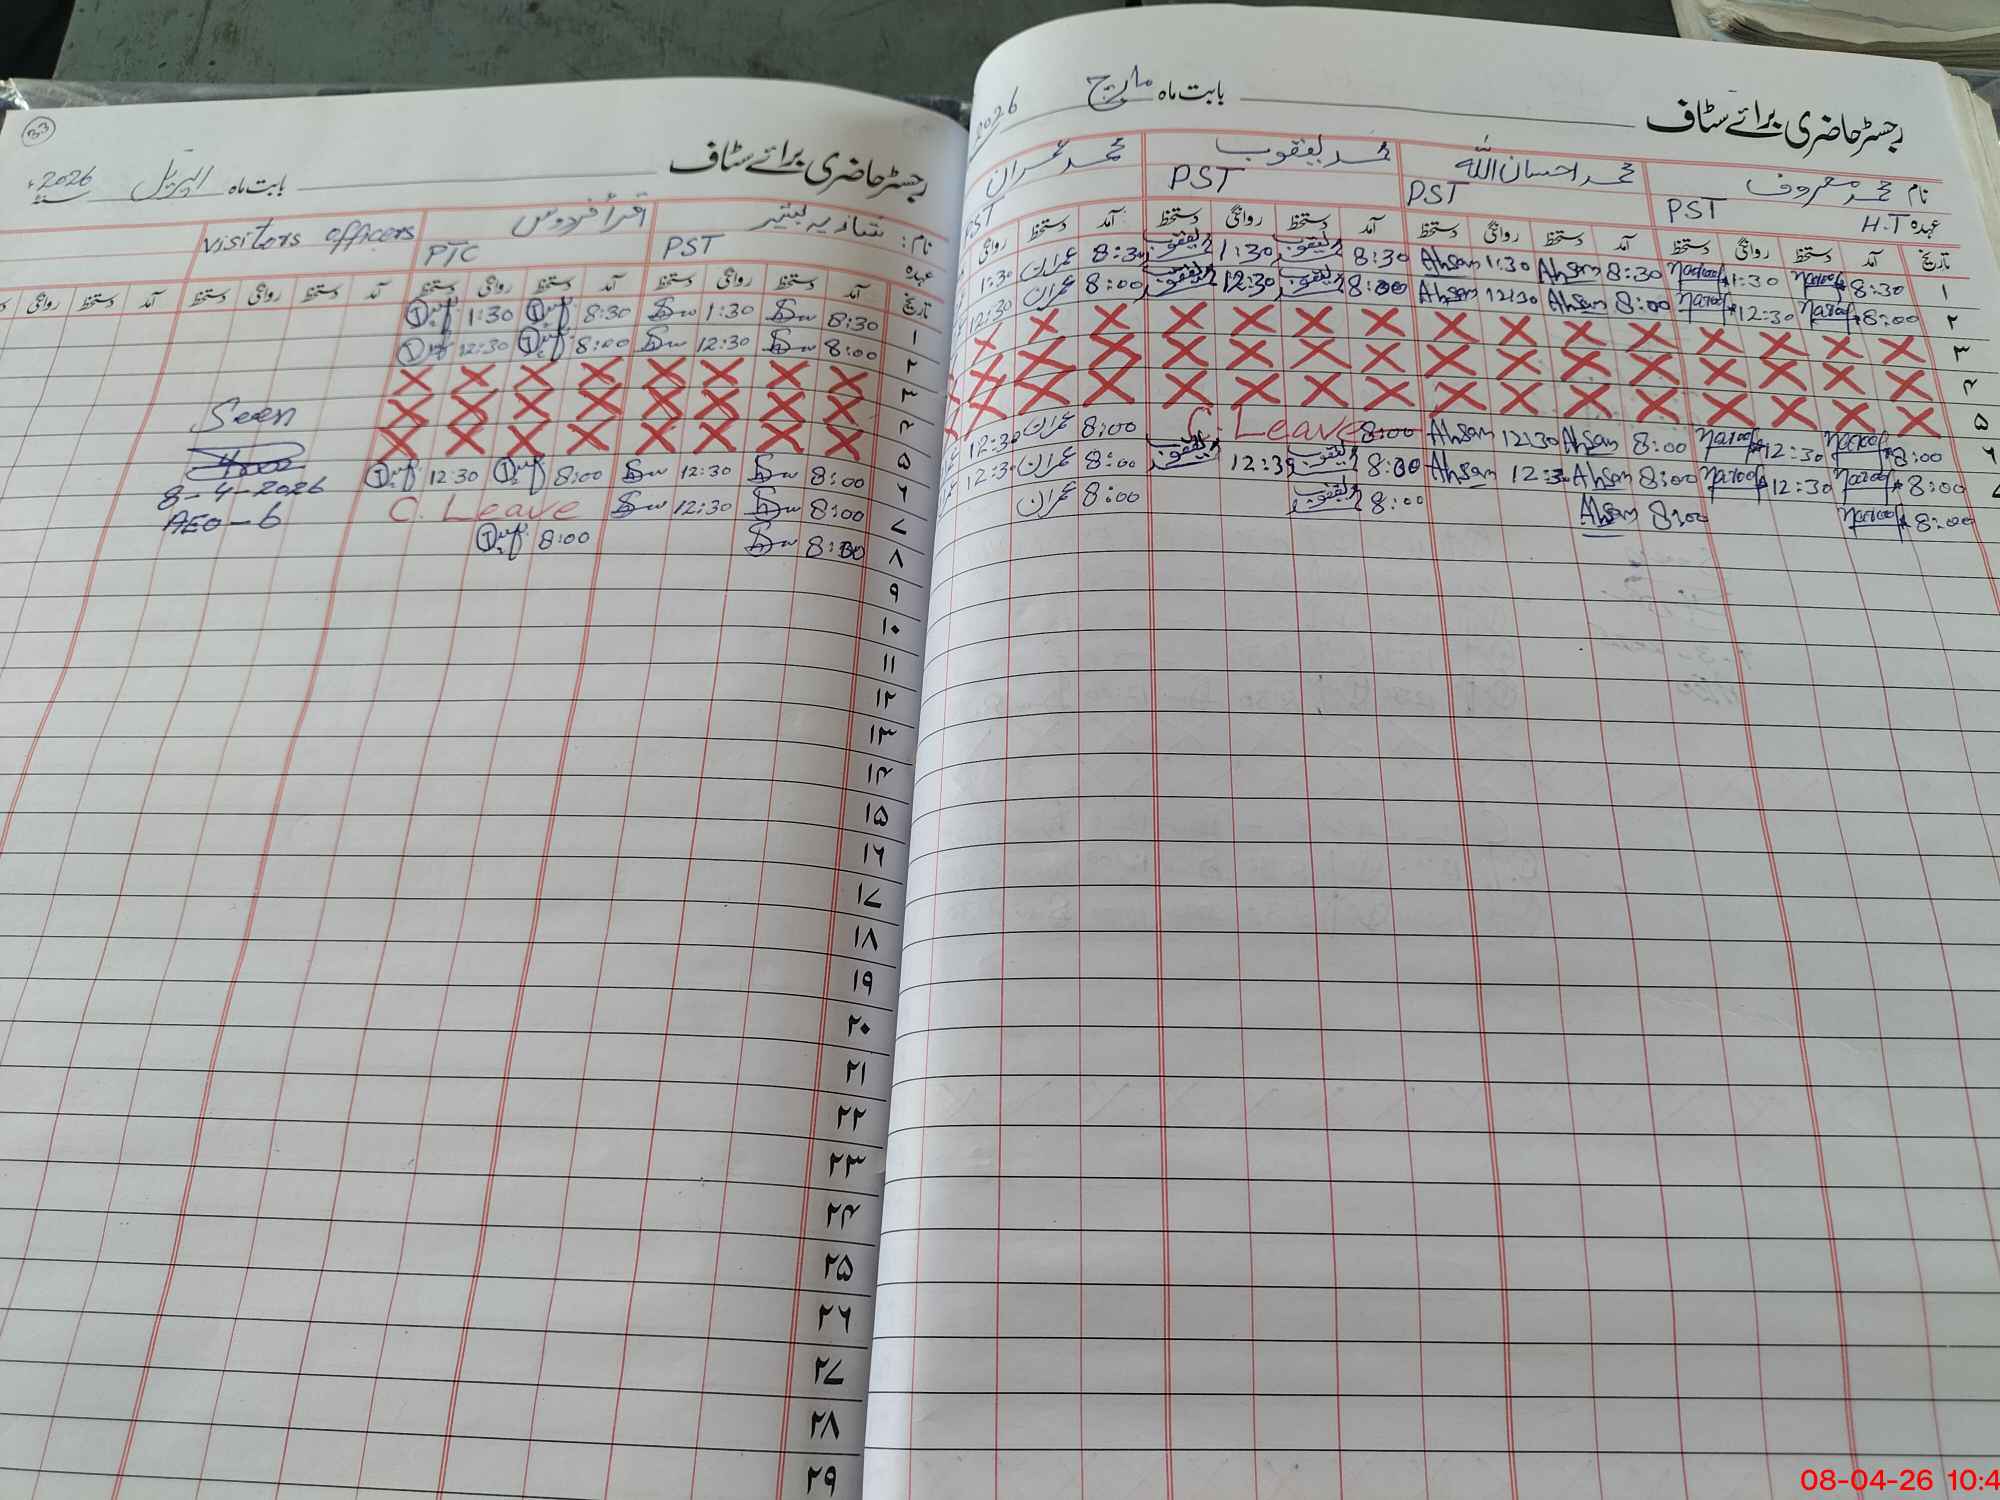 رجسٹر حاضری برائے سٹاف بابت ماہ مارچ 2026
نام محمد معروف محمد احسان اللہ محمد یعقوب محمد عمران
عہدہ H.T PST PST PST PST
تاریخ آمد دستخط روانگی دستخط آمد دستخط روانگی دستخط آمد دستخط روانگی دستخط آمد دستخط روانگی
۱ 8:30 Maroof 1:30 Maroof 8:30 Ahsan 1:30 Ahsan 8:30 یعقوب 1:30 یعقوب 8:30 عمران 1:30
۲ 8:00 Maroof 12:30 Maroof 8:00 Ahsan 12:30 Ahsan 8:00 یعقوب 12:30 یعقوب 8:00 عمران 12:30
۳
۴
۵
۶ 8:00 Maroof 12:30 Maroof 8:00 Ahsan 12:30 Ahsan 8:00 C. Leave 8:00 عمران 12:30
۷ 8:00 Maroof 12:30 Maroof 8:00 Ahsan 12:30 Ahsan 8:00 یعقوب 12:30 یعقوب 8:00 عمران 12:30
8:00 Maroof 8:00 Ahsan 8:00 یعقوب 8:00 عمران
33
رجسٹر حاضری برائے سٹاف بابت ماہ اپریل 2026ء
نام: شازیہ بشیر اقرأ فردوس visitors officers
عہدہ PST PTC
تاریخ آمد دستخط روانگی دستخط آمد دستخط روانگی دستخط آمد دستخط روانگی دستخط آمد دستخط روانگی
۱ 8:30 1:30 8:30 1:30
۲ 8:00 12:30 8:00 12:30
۳
۴
۵
۶ 8:00 12:30 8:00 12:30
۷ 8:00 12:30 C. Leave
۸ 8:00 8:00
Seen
8-4-2026
AEO-6
۹
۱۰
۱۱
۱۲
۱۳
۱۴
۱۵
۱۶
۱۷
۱۸
۱۹
۲۰
۲۱
۲۲
۲۳
۲۴
۲۵
۲۶
۲۷
۲۸
۲۹
08-04-26 10:4